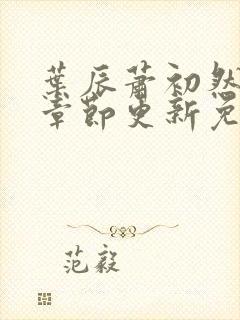 葉辰蕭初然
章節更新免
范毅